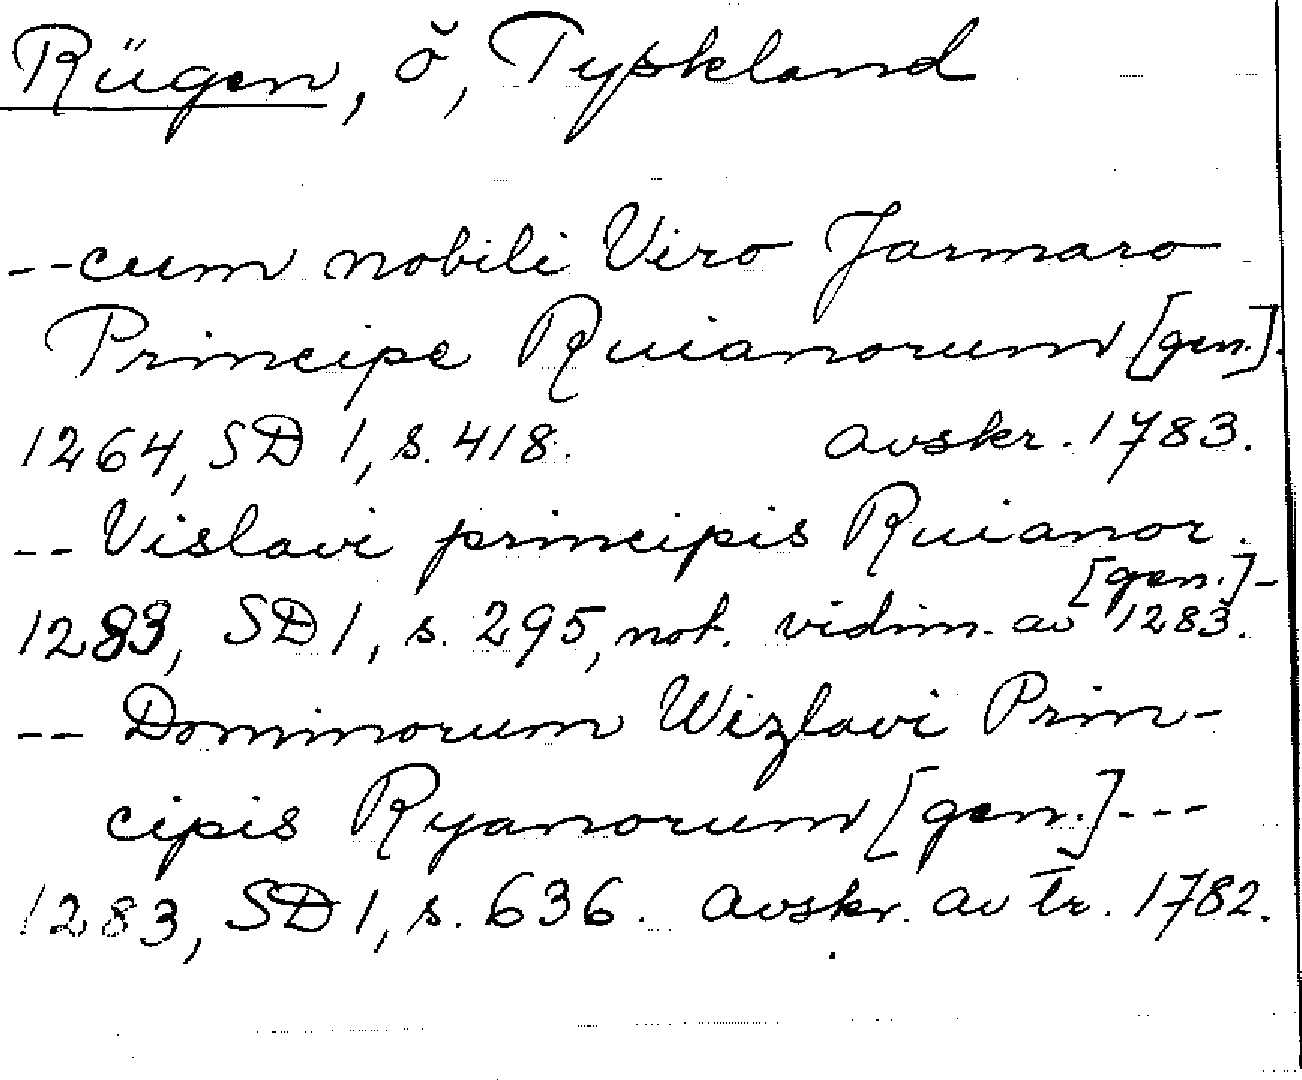 Rügen, ö, Tyskland
--cum nobili Viro Jarmaro
Principe Ruianorum [gen.].
1264, SD 1, s. 418. avskr. 1783.
-- Vislavi principis Ruianor.
[gen.]-
1283, SD 1, s. 295, not. vidim. av 1283.
-- Dominorum Wizlavi Prin-
cipis Ryanorum [gen.]---
1283, SD 1, s. 636. avskr. av tr. 1782.